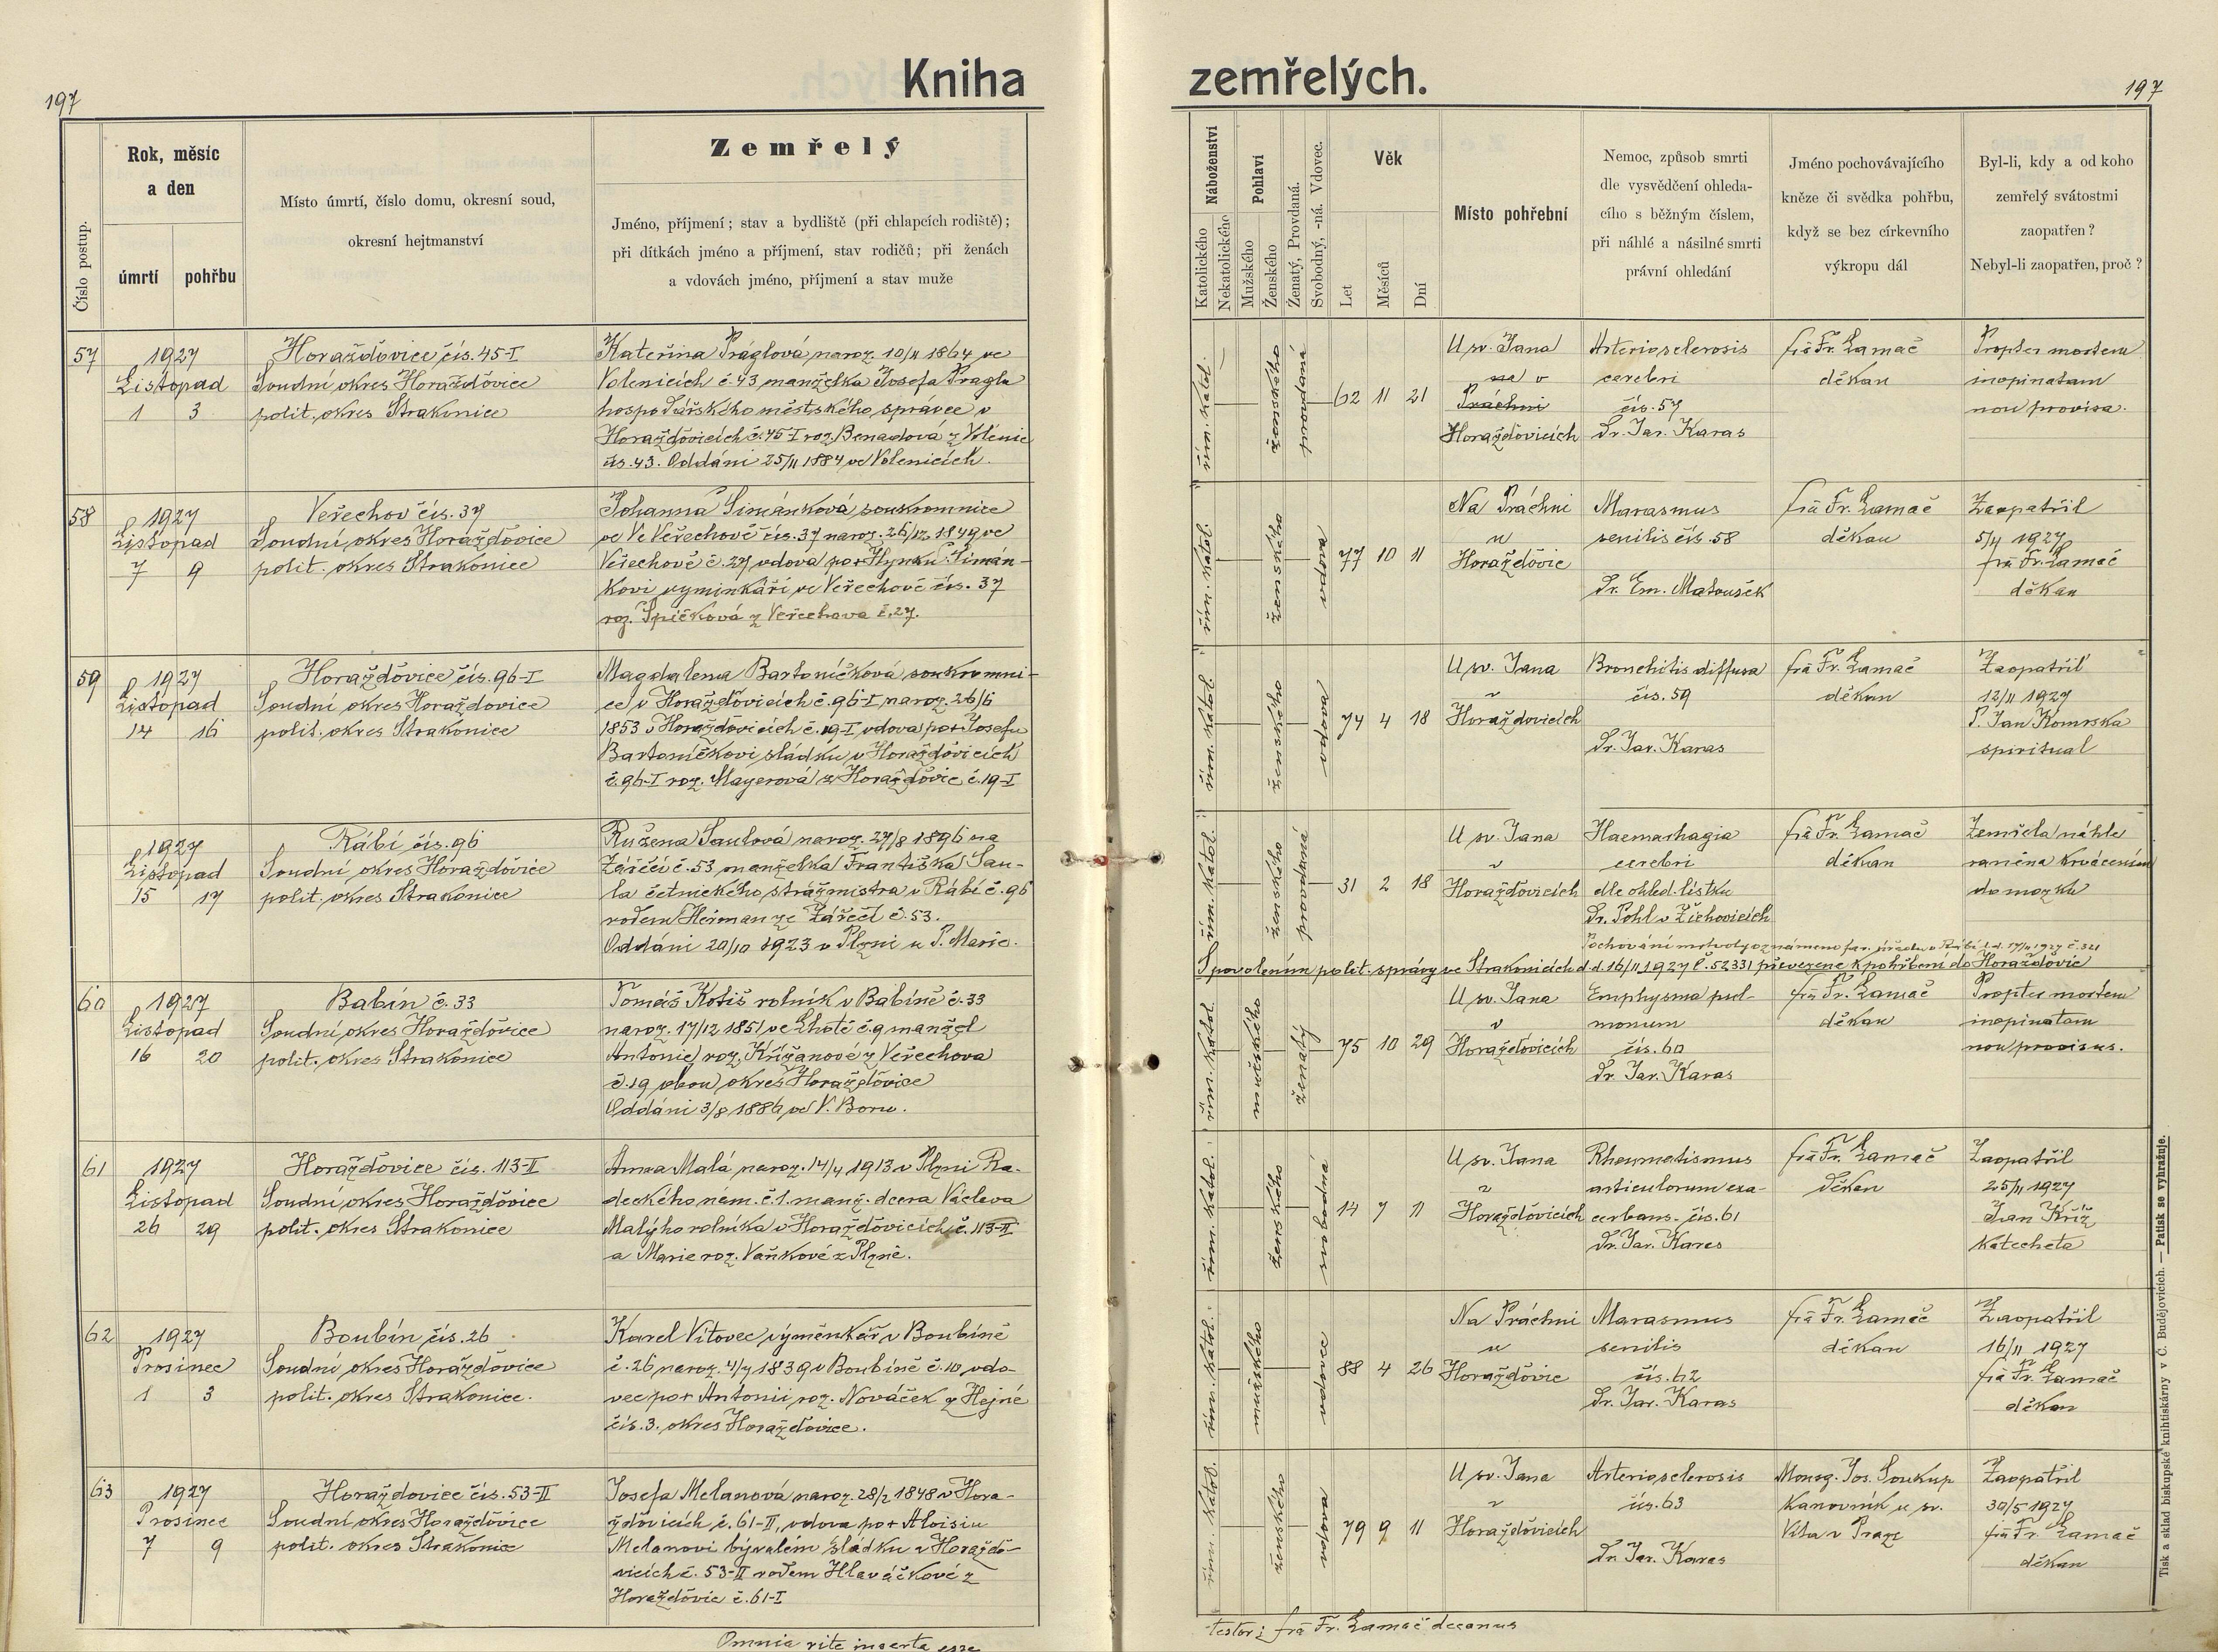 197
Kniha zemřelých.
197
Číslo postup.
Rok, měsíc
a den
úmrtí
pohřbu
Místo úmrtí, číslo domu, okresní soud,
okresní hejtmanství
Zemřelý
Jméno, příjmení; stav a bydliště (při chlapcích rodiště);
při dítkách jméno a příjmení, stav rodičů; při ženách
a vdovách jméno, příjmení a stav muže
Náboženství
Katolického
Nekatolického
Pohlaví
Mužského
Ženského
Ženatý, Provdaná.
Svobodný, -ná. Vdovec.
Věk
Let
Měsíců
Dní
Místo pohřební
Nemoc, způsob smrti
dle vysvědčení ohleda-
cího s běžným číslem,
při náhlé a násilné smrti
právní ohledání
Jméno pochovávajícího
kněze či svědka pohřbu,
když se bez církevního
výkropu dál
Byl-li, kdy a od koho
zemřelý svátostmi
zaopatřen?
Nebyl-li zaopatřen, proč?
57
1927
Listopad
1 3
Horažďovice čís. 45-I
Soudní okres Horažďovice
polit. okres Strakonice
Kateřina Práglová naroz. 10/11 1864 ve
Volenicích č. 43 manželka Josefa Pragla
hospodářského městského správce v
Horažďovicích č. 45-I roz. Benadová z Volenic
čís. 43. Oddáni 25/11 1884 ve Volenicích.
řím. katol.
ženského
provdaná
62 11 21
U sv. Jana
na v
Práchni
Horažďovicích
Arteriosclerosis
cerebri
čís. 57
Dr. Jar. Karas
fra Fr. Lamač
děkan
Propter mortem
inopinatam
non provisa.
58
1927
Listopad
7 9
Veřechov čís. 37
Soudní okres Horažďovice
polit. okres Strakonice
Johanna Šimánková, soukromnice
ve Ve Veřechově čís. 37 naroz. 26/12 1849 ve
Veřechově č. 27 vdova po + Hynku Šimán-
kovi vyminkáři ve Veřechově čís. 37
roz. Špičková z Veřechova č. 27.
řím. katol.
ženského
vdova
77 10 11
Na Práchni
u
Horažďovic
Marasmus
senilis čís. 58
Dr. Em. Matoušek
fra Fr. Lamač
děkan
Zaopatřil
5/4 1927
fra Fr. Lamač
děkan
59
1927
Listopad
14 16
Horažďovice čís. 96-I
Soudní okres Horažďovice
polit. okres Strakonice
Magdalena Bartoníčková soukromni-
ce v Horažďovicích č. 96-I naroz. 26/6
1853 v Horažďovicích č. 19-I, vdova po + Josefu
Bartoníčkovi sládku v Horažďovicích
č. 96-I roz. Mayerová z Horažďovic č. 19-I
řím. katol.
ženského
vdova
74 4 18
U sv. Jana
v
Horažďovicích
Bronchitis diffusa
čís. 59
Dr. Jar. Karas
fra Fr. Lamač
děkan
Zaopatřil
12/11 1927
P. Jan Komrska
spirituál
1927
Listopad
15 17
Rábí čís. 96
Soudní okres Horažďovice
polit. okres Strakonice
Růžena Šaulová naroz. 27/8 1896 na
Zářečí č. 53 manželka Františka Šau-
la četnického strážmistra v Rábí č. 96
rodem Heřman ze Zářečí č. 53.
Oddáni 20/10 1923 v Plzni u P. Marie.
řím. katol.
ženského
provdaná
31 2 18
U sv. Jana
v
Horažďovicích
Haemorhagia
cerebri
dle ohled. lístku
Dr. Pohl v Žichovicích
fra Fr. Lamač
děkan
Zemřela náhle
raněna krvácením
do mozku
Pochování mrtvoly oznámeno far. úřadu v Rábí d.d. 17/11 1927 č. 321
S povolením polit. správy ve Strakonicích d.d. 16/11 1927 č. 52331 převezena k pohřbení do Horažďovic
60
1927
Listopad
16 20
Babín č. 33
Soudní okres Horažďovice
polit. okres Strakonice
Tomáš Kotiš rolník v Babíně č. 33
naroz. 17/12 1851 ve Lhotě č. 9 manžel
Antonie roz. Křižanové z Veřechova
č. 19 obou okres Horažďovice
Oddáni 3/8 1886 ve V. Boru.
řím. katol.
mužského
ženatý
75 10 29
U sv. Jana
v
Horažďovicích
Emphysma pul-
monum
čís. 60
Dr. Jar. Karas
fra Fr. Lamač
děkan
Propter mortem
inopinatam
non provisus.
61
1927
Listopad
26 29
Horažďovice čís. 113-II
Soudní okres Horažďovice
polit. okres Strakonice
Anna Malá naroz. 14/4 1913 v Plzni Ra-
deckého nám. č. 1. manž. dcera Václava
Malýho rolníka v Horažďovicích č. 113-II
a Marie roz. Vaňkové z Plzně.
řím. katol.
ženského
svobodná
14 7 11
U sv. Jana
v
Horažďovicích
Rheumatismus
articulorum exa-
cerbans. čís. 61
Dr. Jar. Karas
fra Fr. Lamač
děkan
Zaopatřil
25/11 1927
Jan Kříž
katecheta
62
1927
Prosinec
1 3
Boubín čís. 26
Soudní okres Horažďovice
polit. okres Strakonice.
Karel Vítovec výměnkář v Boubíně
č. 26 naroz. 4/7 1839 v Boubíně č. 10 vdo-
vec po + Antonii roz. Nováček z Hejné
čís. 3. okres Horažďovice.
řím. katol.
mužského
vdovec
88 4 26
Na Práchni
u
Horažďovic
Marasmus
senilis
čís. 62
Dr. Jar. Karas
fra Fr. Lamač
děkan
Zaopatřil
16/11 1927
fra Fr. Lamač
děkan
63
1927
Prosinec
7 9
Horažďovice čís. 53-II
Soudní okres Horažďovice
polit. okres Strakonice
Josefa Melanová naroz. 28/2 1848 v Hora-
žďovicích č. 61-II, vdova po + Aloisiu
Melanovi bývalém sládku v Horaždo-
vicích č. 53-II rodem Hlaváčkové z
Horažďovic č. 61-I
řím. katol.
ženského
vdova
79 9 11
U sv. Jana
v
Horažďovicích
Arteriosclerosis
čís. 63
Dr. Jar. Karas
Monsg. Jos. Soukup
kanovník u sv.
Víta v Praze
Zaopatřil
30/5 1927
fra Fr. Lamač
děkan
Omnia rite inserta esse
testor: fra Fr. Lamač decanus
Tisk a sklad biskupské knihtiskárny v Č. Budějovicích. — Patisk se vyhražuje.